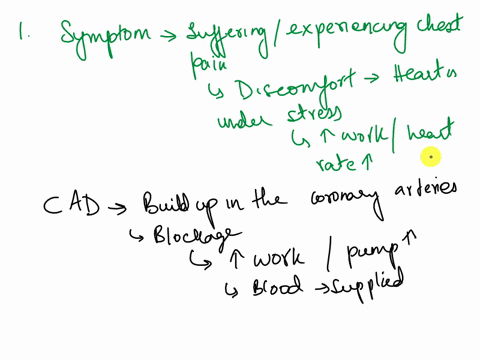 1. Symptom → Suffering / experiencing chest
pain
↳ Discomfort → Heart is
under stress
↳ ↑ work / heart
rate ↑
CAD → Build up in the coronary arteries
↳ Blockage
↳ ↑ work / pump ↑
↳ Blood → supplied